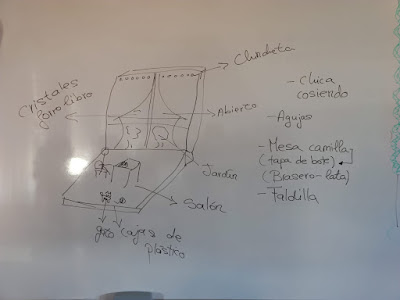 Chincheta
Cristales
forro libro
Abierto
Jardín
Salón
cajas de
plástico
- Chica
cosiendo
- Agujas
- Mesa camilla
(tapa de bote)
(Brasero-lata)
- Faldilla